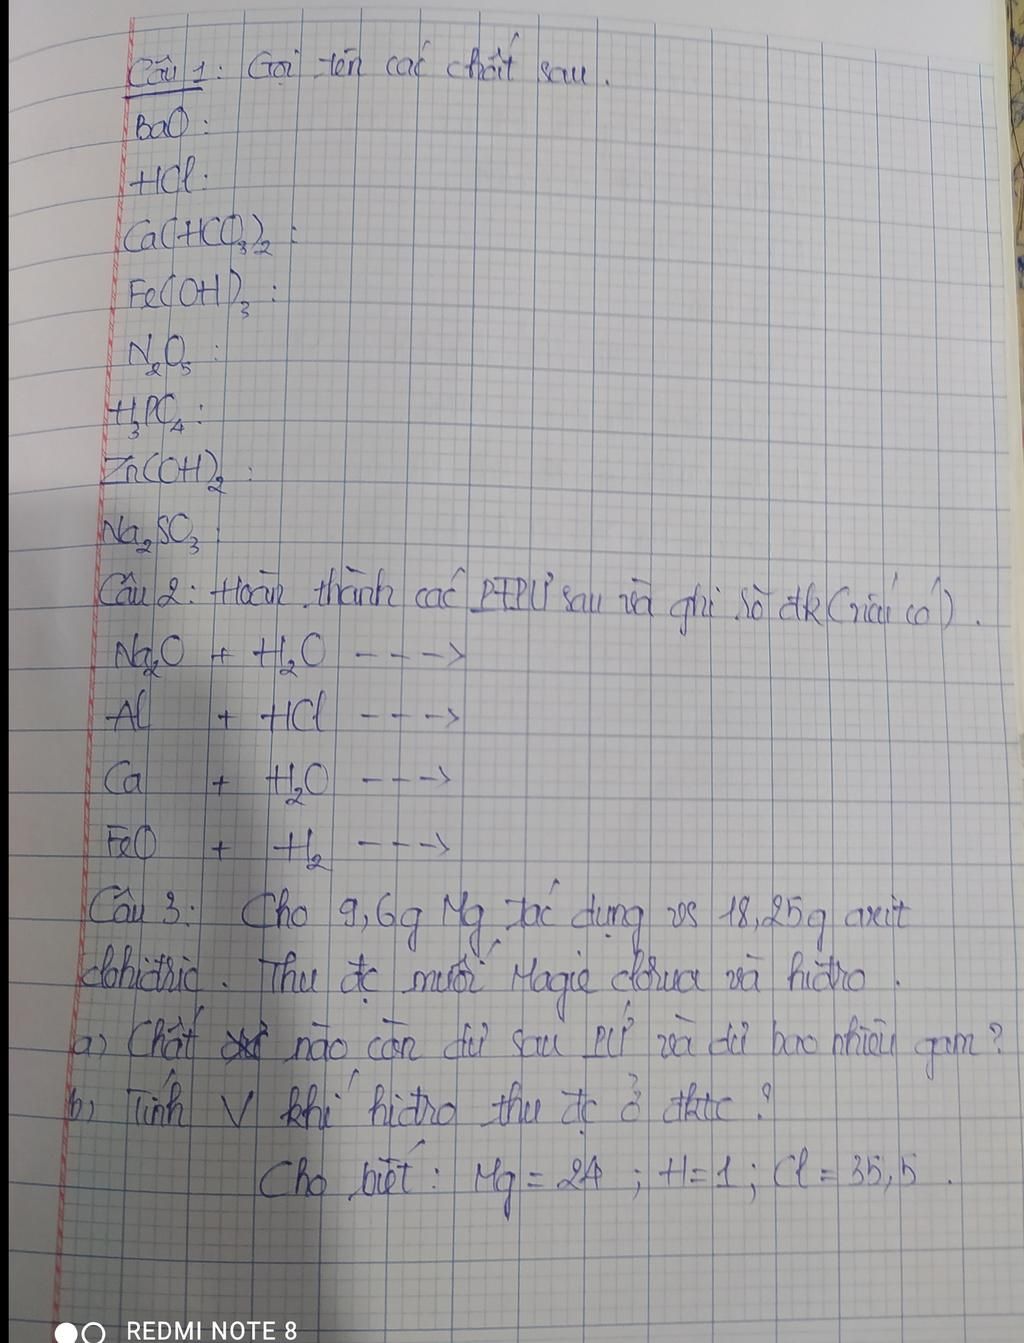 Câu 1: Gọi tên các chất sau.
BaO:
HCl:
Ca(HCO₃)₂:
Fe(OH)₃:
N₂O₅:
H₃PO₄:
Zn(OH)₂:
Na₂SO₃:
Câu 2: Hoàn thành các PTPƯ sau và ghi rõ đk (nếu có).
Na₂O + H₂O --->
Al + HCl --->
Ca + H₂O --->
FeO + H₂ --->
Câu 3: Cho 9,6g Mg tác dụng vs 18,25g axit
clohiđric. Thu đc muối Magie clorua và hiđro.
a) Chất nào còn dư sau PƯ và dư bao nhiêu gam?
b) Tính V khí hiđro thu đc ở đktc?
Cho biết: Mg = 24; H = 1; Cl = 35,5.
REDMI NOTE 8